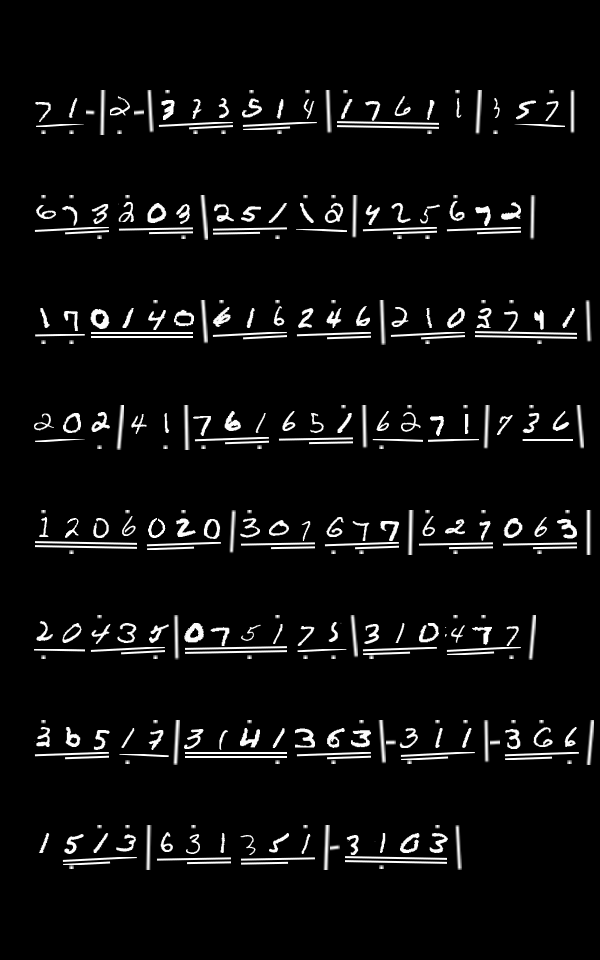 71-|2-|373514|17611|357|
673203|25112|425672|
170140|616246|2103741|
202|41|761651|6271|736|
1206020|307677|627063|
20435|075175|310477|
36517|3141363|-311|-366|
1513|631351|-3103|